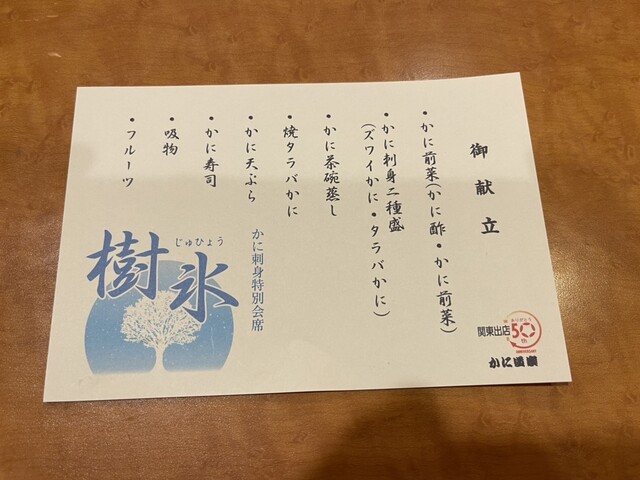 御献立
・かに前菜(かに酢・かに前菜)
・かに刺身二種盛
(ズワイかに・タラバかに)
・かに茶碗蒸し
・焼タラバかに
・かに天ぷら
・かに寿司
・吸物
・フルーツ
かに刺身特別会席
じゅひょう
樹氷
関東出店
ありがとう
50th
ANNIVERSARY
かに道楽